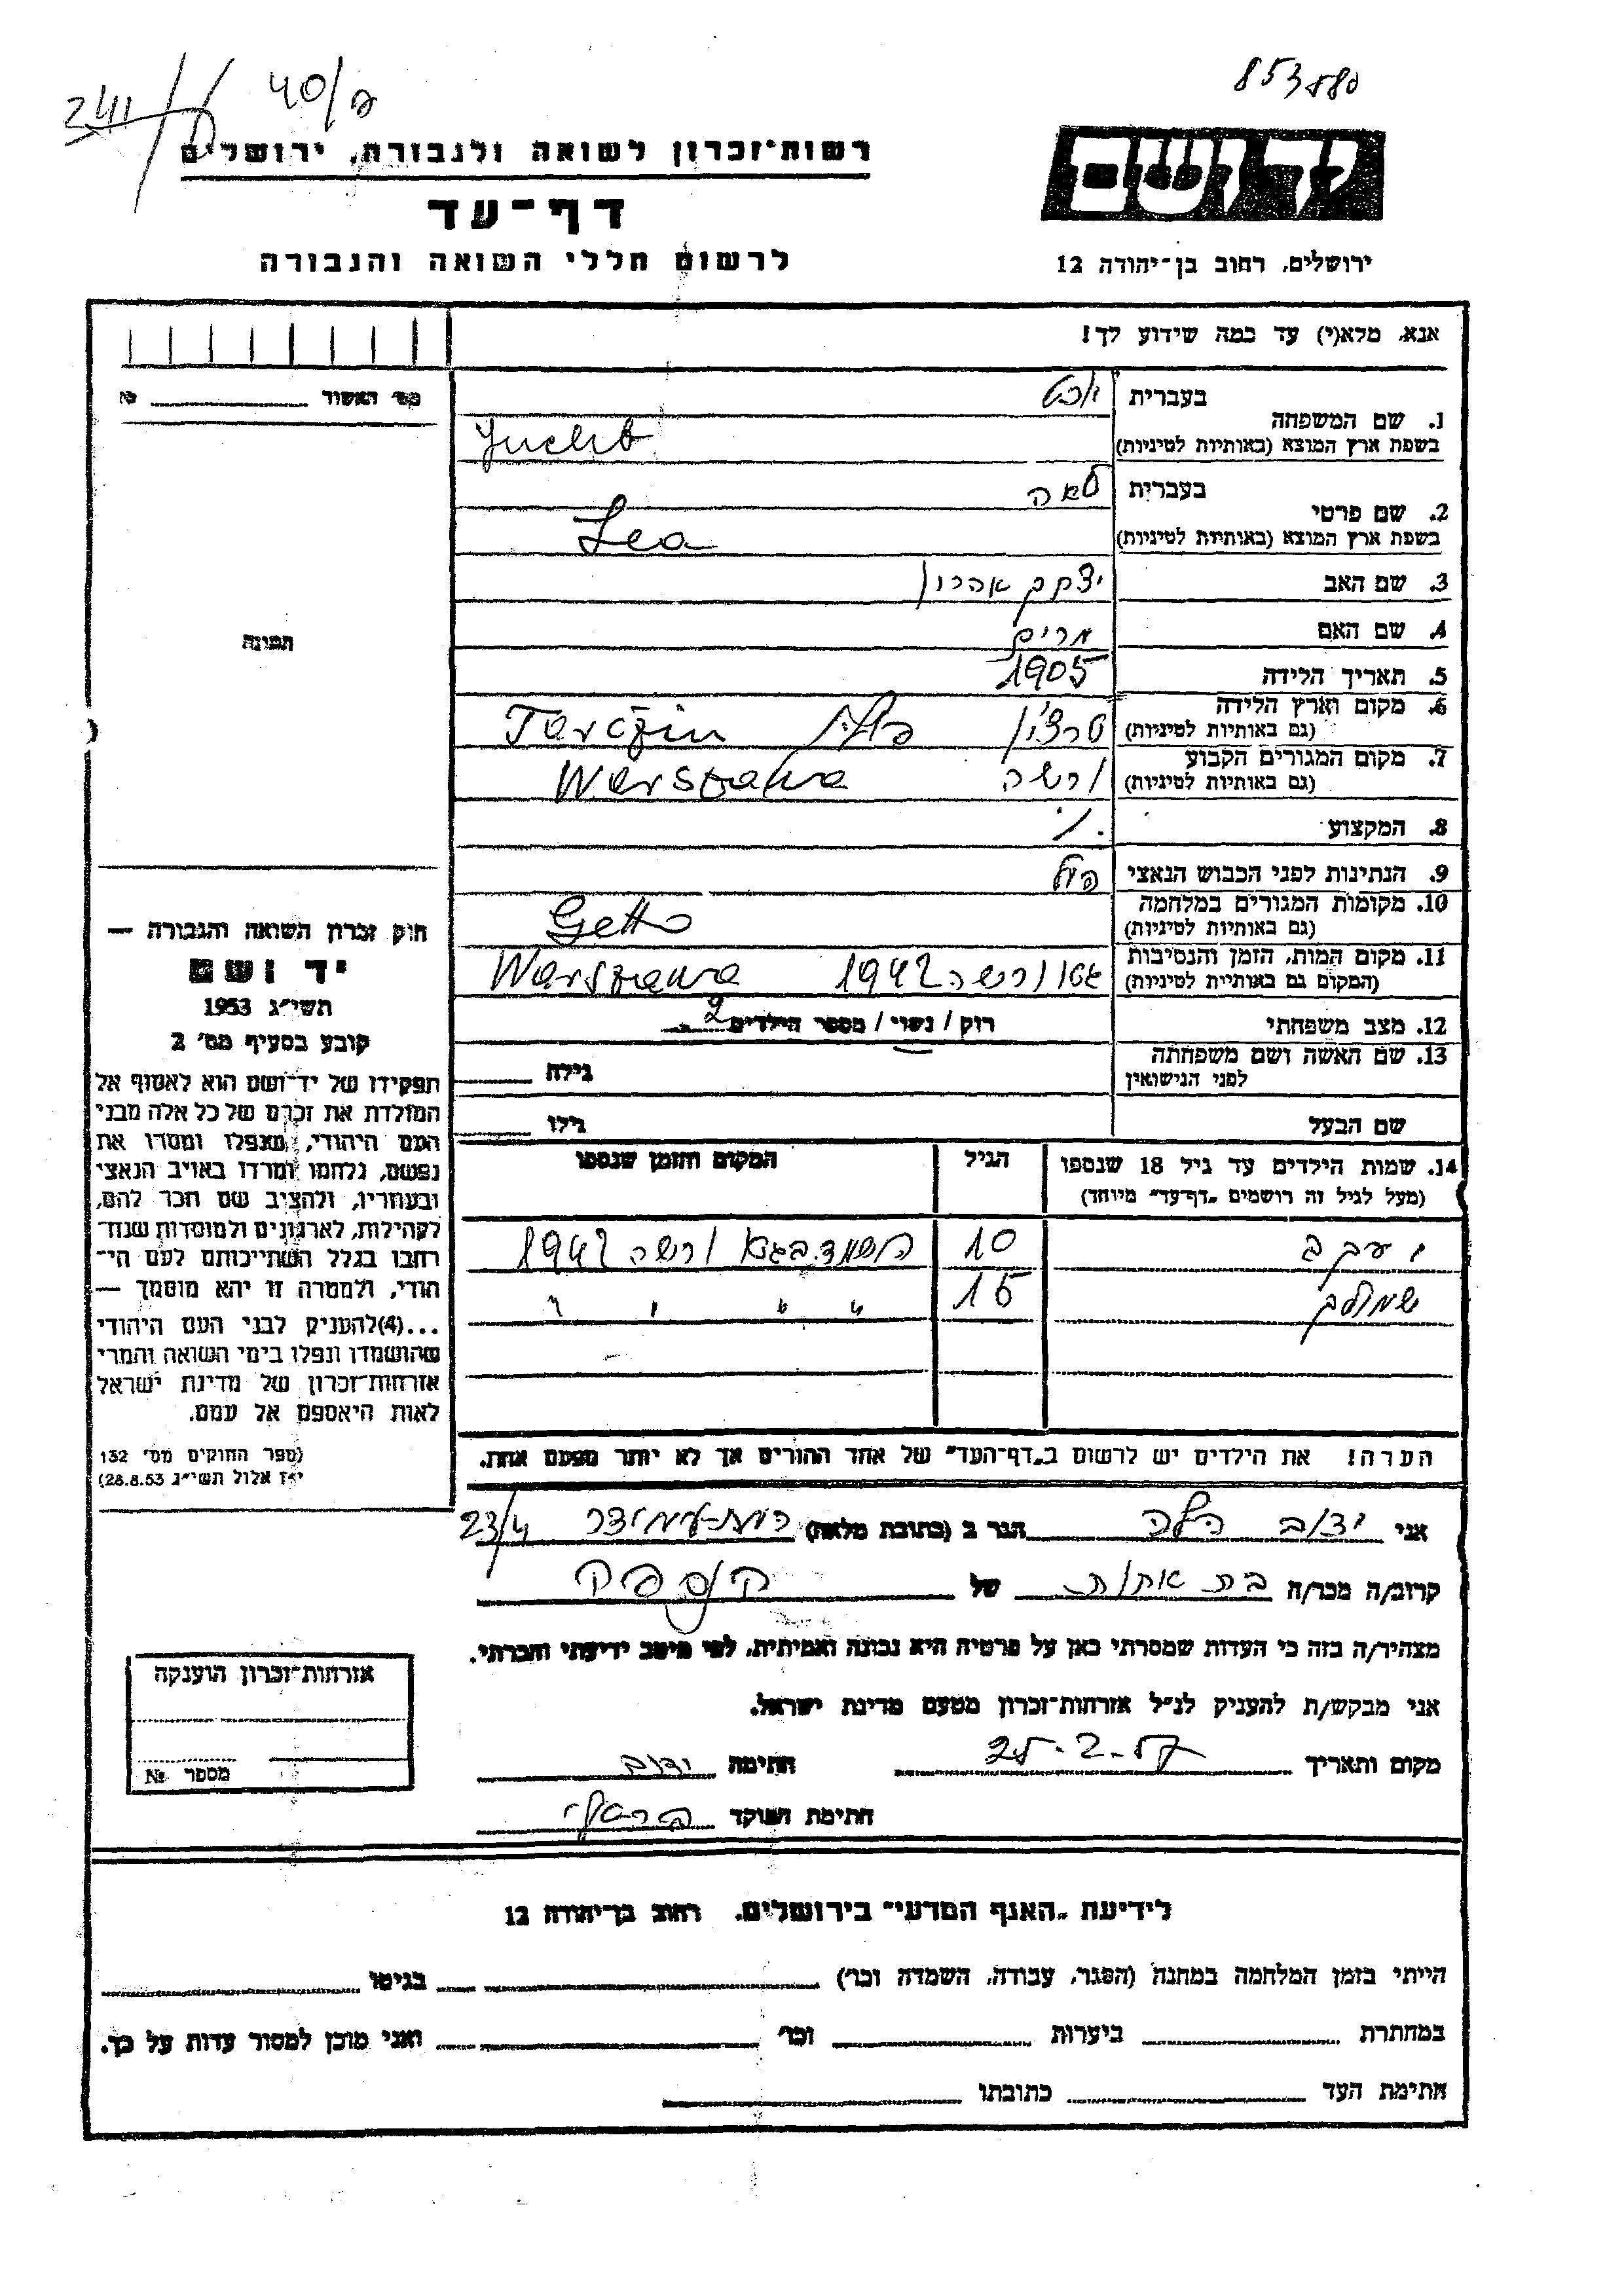 853880
241
40/פ
יד ושם
רשות־זכרון לשואה ולגבורה, ירושלים
דף־עד
לרשום חללי השואה והגבורה
ירושלים, רחוב בן־יהודה 12
אנא, מלא(י) עד כמה שידוע לך!
מס׳ האשור № 
תמונה
חוק זכרון השואה והגבורה —
יד ושם
תשי״ג 1953
קובע בסעיף מס׳ 2
תפקידו של יד־ושם הוא לאסוף אל
המולדת את זכרם של כל אלה מבני
העם היהודי, שנפלו ומסרו את
נפשם, נלחמו ומרדו באויב הנאצי
ובעוזריו, ולהציב שם וזכר להם,
לקהילות, לארגונים ולמוסדות שנח־
רבו בגלל השתייכותם לעם הי־
הודי, ולמטרה זו יהא מוסמך —
...(4)להעניק לבני העם היהודי
שהושמדו ונפלו בימי השואה והמרי
אזרחות־זכרון של מדינת ישראל
לאות היאספם אל עמם.
(ספר החוקים מס׳ 132
י״ז אלול תשי״ג 28.8.53)
1. שם המשפחה
בעברית יוכט
בשפת ארץ המוצא (באותיות לטיניות) Jucht
2. שם פרטי
בעברית לאה
בשפת ארץ המוצא (באותיות לטיניות) Lea
3. שם האב יצחק אהרון
4. שם האם מרים
5. תאריך הלידה 1905
6. מקום וארץ הלידה
(גם באותיות לטיניות) טרצ׳ין פולין Tarczin
7. מקום המגורים הקבוע
(גם באותיות לטיניות) ורשה Warszawa
8. המקצוע ·/·
9. הנתינות לפני הכבוש הנאצי פול׳
10. מקומות המגורים במלחמה
(גם באותיות לטיניות) Getto
11. מקום המות, הזמן והנסיבות
(המקום גם באותיות לטיניות) גטו ורשה 1942 Warszawa
12. מצב משפחתי רווק / נשוי / מספר הילדים 2
13. שם האשה ושם משפחתה
לפני הנישואין גילה
שם הבעל גילו
14. שמות הילדים עד גיל 18 שנספו
(מעל לגיל זה רושמים „דף־עד״ מיוחד)
הגיל
המקום והזמן שנספו
יעקב 10 הושמד בגטו ורשה 1942
שמולק 15 " " " "
הערה! את הילדים יש לרשום ב„דף־העד״ של אחד ההורים אך לא יותר מפעם אחת.
אני יצוב הלה הגר ב (כתובת מלאה) רמת־עמידר 23/4
קרוב/ה מכר/ה בת אחות של
מצהיר/ה בזה כי העדות שמסרתי כאן על פרטיה היא נכונה ואמיתית, לפי מיטב ידיעתי והכרתי.
אני מבקש/ת להעניק לנ״ל אזרחות־זכרון מטעם מדינת ישראל.
מקום ותאריך 25-2-57 חתימה
חתימת הפוקד
אזרחות־זכרון הוענקה
מספר №
לידיעת „האגף המדעי״ בירושלים, רחוב בן־יהודה 12
הייתי בזמן המלחמה במחנה (הסגר, עבודה, השמדה וכו׳) בגיטו
במחתרת ביערות וכו׳ ואני מוכן למסור עדות על כך.
חתימת העד כתובתו